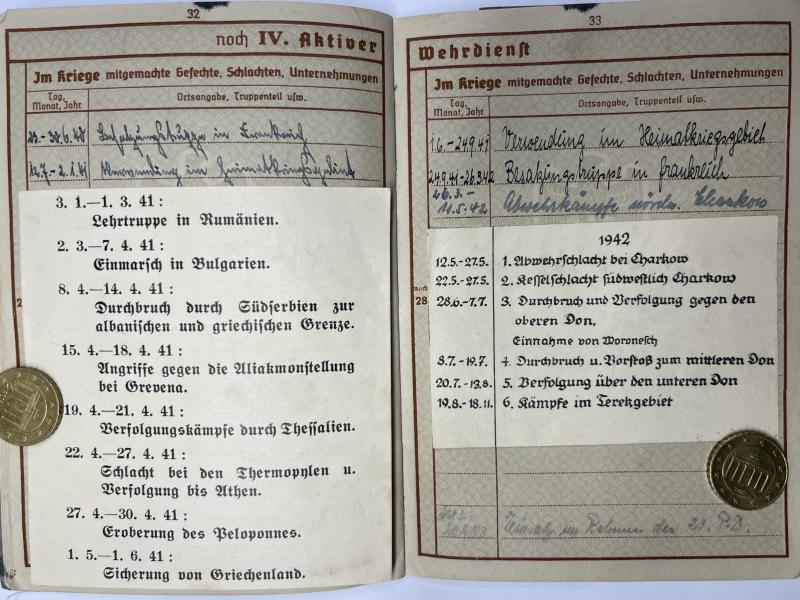 32
noch IV. Aktiver
Im Kriege mitgemachte Gefechte, Schlachten, Unternehmungen
Tag, Monat, Jahr
Ortsangabe, Truppenteil usw.
Besatzungstruppe in Frankreich
12.7.- 2.1.41 Verwendung im Heimatkriegsgebiet
3. 1.—1. 3. 41 :
Lehrtruppe in Rumänien.
2. 3.—7. 4. 41 :
Einmarsch in Bulgarien.
8. 4.—14. 4. 41 :
Durchbruch durch Südserbien zur
albanischen und griechischen Grenze.
15. 4.—18. 4. 41 :
Angriffe gegen die Aliakmonstellung
bei Grevena.
19. 4.—21. 4. 41 :
Verfolgungskämpfe durch Thessalien.
22. 4.—27. 4. 41 :
Schlacht bei den Thermopylen u.
Verfolgung bis Athen.
27. 4.—30. 4. 41 :
Eroberung des Peloponnes.
1. 5.—1. 6. 41 :
Sicherung von Griechenland.
33
Wehrdienst
Im Kriege mitgemachte Gefechte, Schlachten, Unternehmungen
Tag, Monat, Jahr
Ortsangabe, Truppenteil usw.
1.6.-24.9.41 Verwendung im Heimatkriegsgebiet
24.9.41-26.3.42 Besatzungstruppe in Frankreich
26.3.-
11.5.42 Abwehrkämpfe nördl. Charkow
noch
28
1942
12.5.-27.5. 1. Abwehrschlacht bei Charkow
22.5.-27.5. 2. Kesselschlacht südwestlich Charkow
28.6.-7.7. 3. Durchbruch und Verfolgung gegen den
oberen Don,
Einnahme von Woronesch
8.7.-19.7. 4. Durchbruch u. Vorstoß zum mittleren Don
20.7.-13.8. 5. Verfolgung über den unteren Don
19.8.-18.11. 6. Kämpfe im Terekgebiet
im Rahmen der 23. P.D.